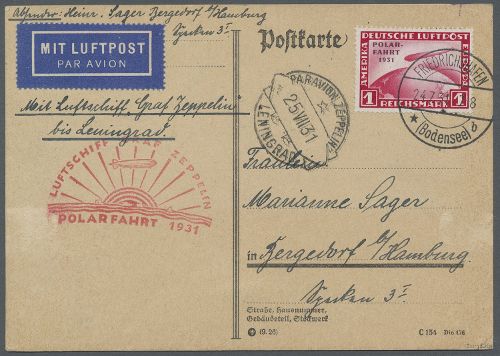 Absender: Heinr. Sager Bergedorf b/Hamburg
Specken 3I
MIT LUFTPOST
PAR AVION
Mit Luftschiff „Graf Zeppelin“
bis Leningrad.
LUFTSCHIFF GRAF ZEPPELIN
POLARFAHRT 1931
Postkarte
PAR AVION ZEPPELIN
25 VII 31
LENINGRAD
DEUTSCHE LUFTPOST
AMERIKA
EUROPA
POLAR-
FAHRT
1931
1 REICHSMARK 1
FRIEDRICHSHAFEN
24.7.31
8
(Bodensee) b
Fräulein
Marianne Sager
in Bergedorf b/Hamburg
Specken 3I
Straße, Hausnummer,
Gebäudeteil, Stockwerk
(9. 26)
C 154 Din 476